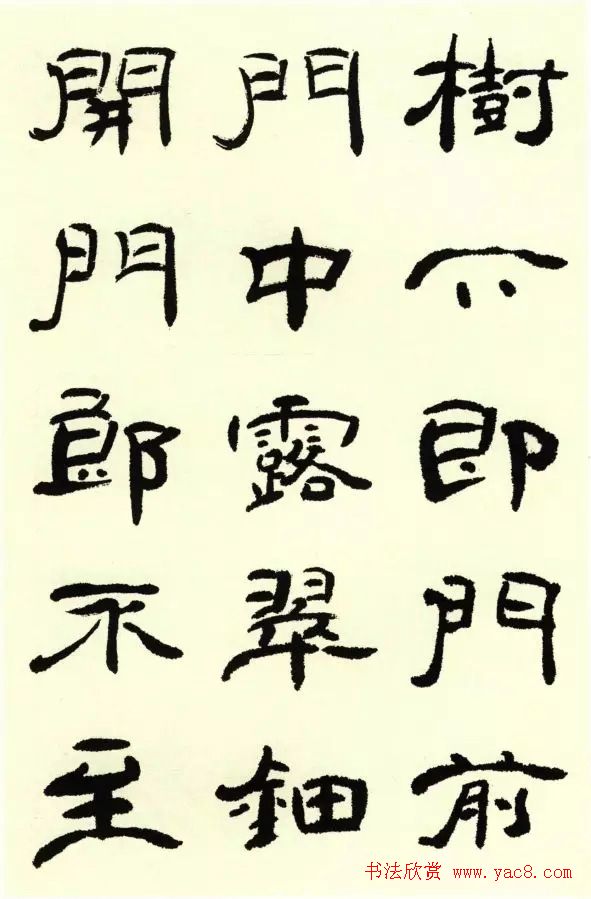 樹下即門前
門中露翠鈿
開門郎不至
书法欣赏 www.yac8.com